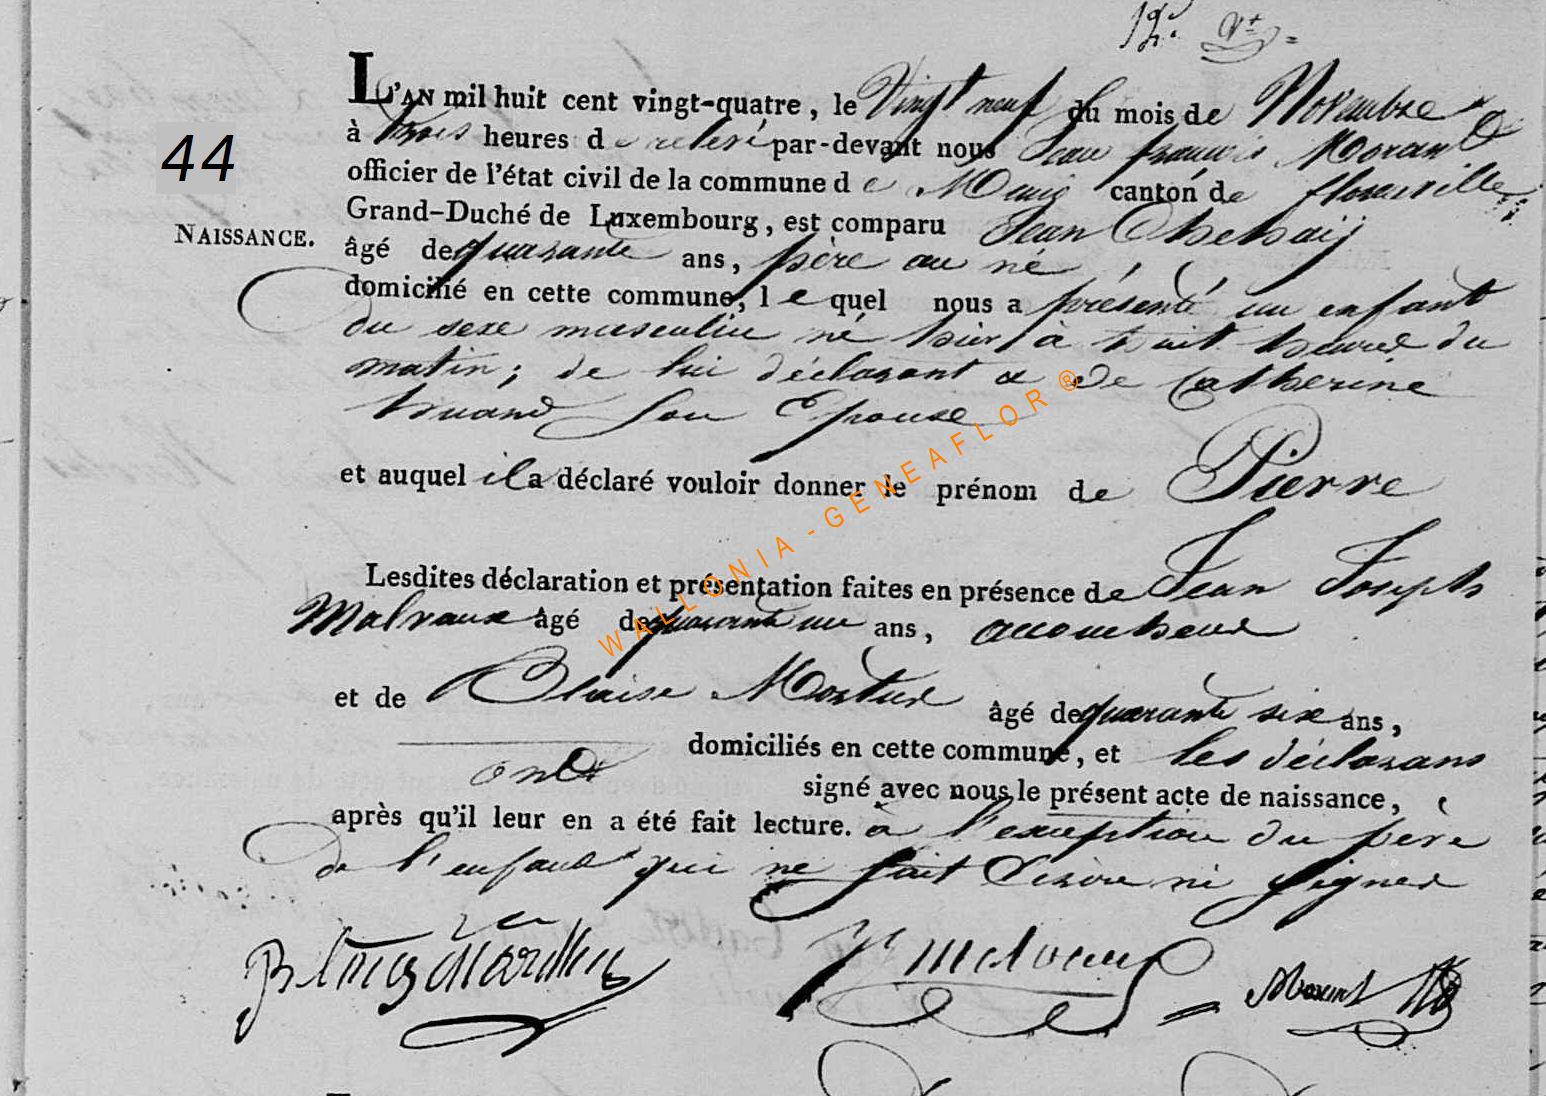 L'AN mil huit cent vingt-quatre, le Vingt neuf du mois de Novembre
à trois heures de relevé par-devant nous Jean françois Morant
officier de l'état civil de la commune de canton de florenville
Grand-Duché de Luxembourg, est comparu Jean
44
NAISSANCE.
âgé de quarante ans, père au né
domicilié en cette commune, lequel nous a présenté un enfant
du sexe masculin né hier à huit heures du
matin; de lui déclarant & de Catherine
son Epouse
et auquel il a déclaré vouloir donner le prénom de Pierre
Lesdites déclaration et présentation faites en présence de Jean Joseph
Malvaux âgé de quarante un ans, accoucheur
et de Blaise âgé de quarante six ans,
domiciliés en cette commune, et les déclarans
ont signé avec nous le présent acte de naissance,
après qu'il leur en a été fait lecture. à l'exception du père
de l'enfant qui ne sait Ecrire ni signer
WALLONIA-GENEAFLOR®